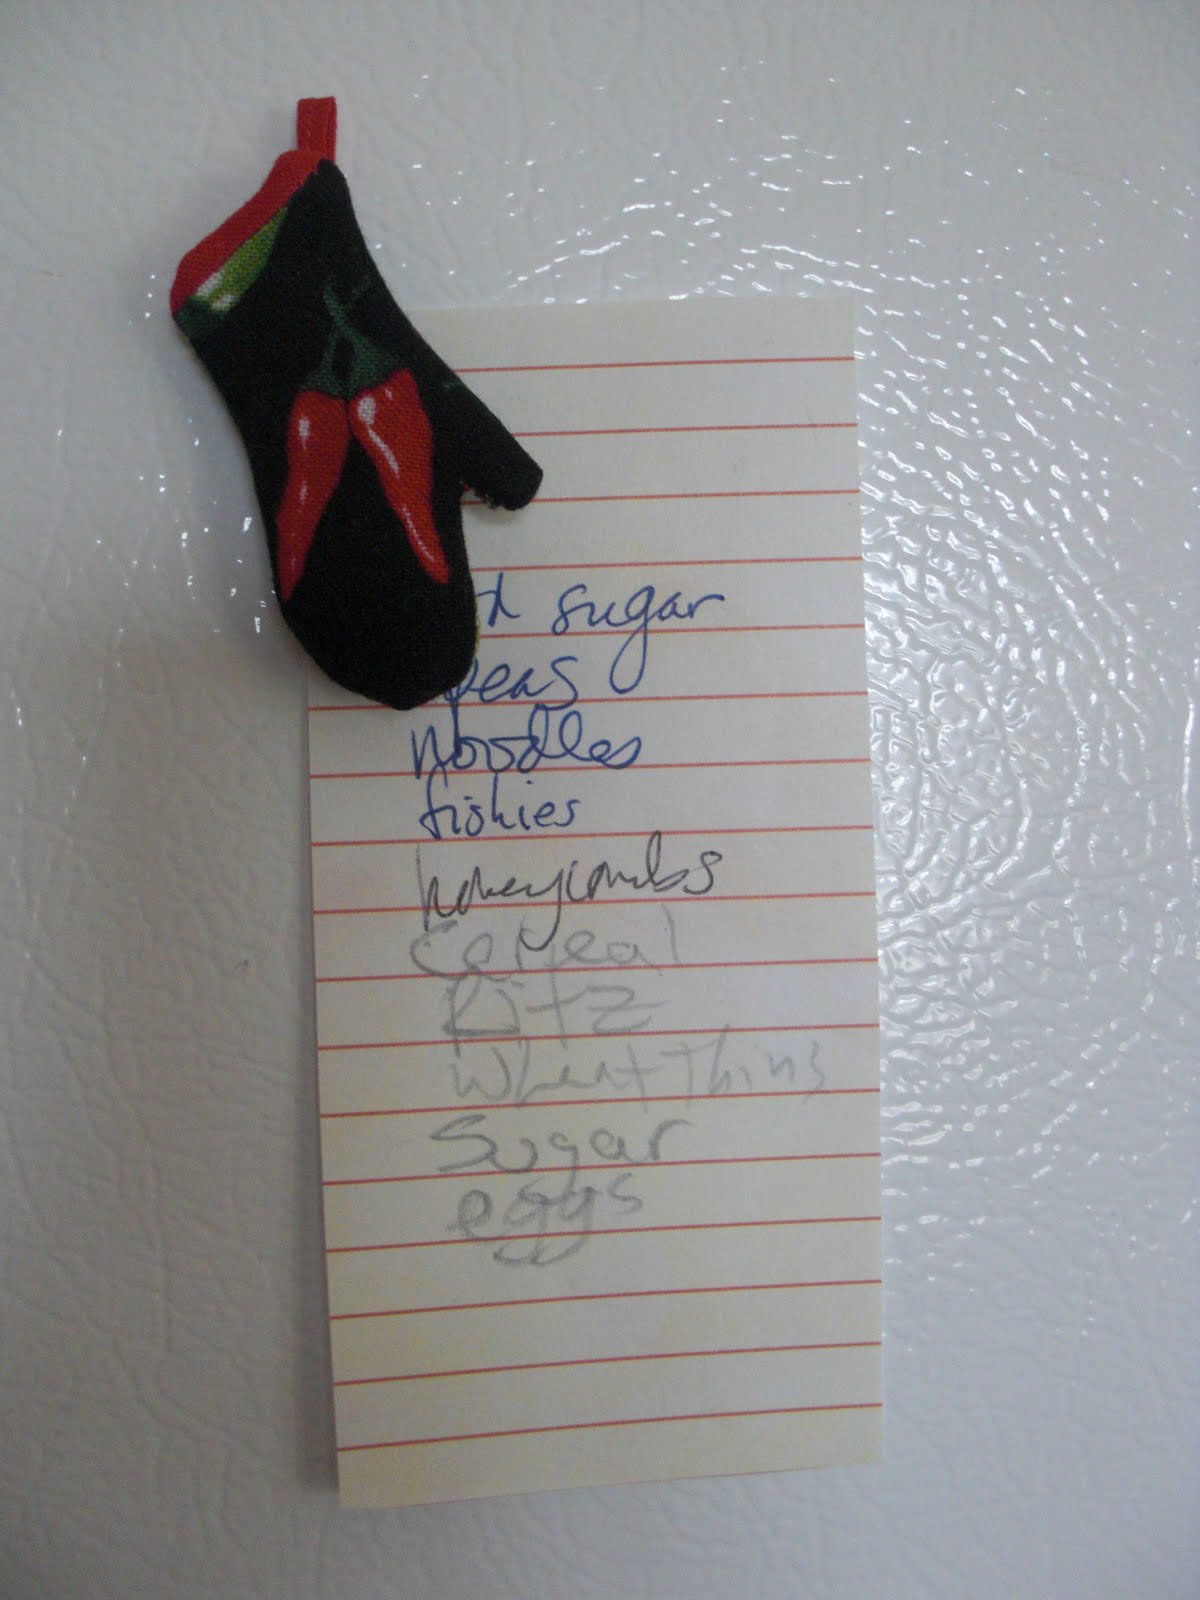 sugar
peas
noodles
fishies
honeycombs
Cereal
Ritz
Wheat Thins
Sugar
eggs